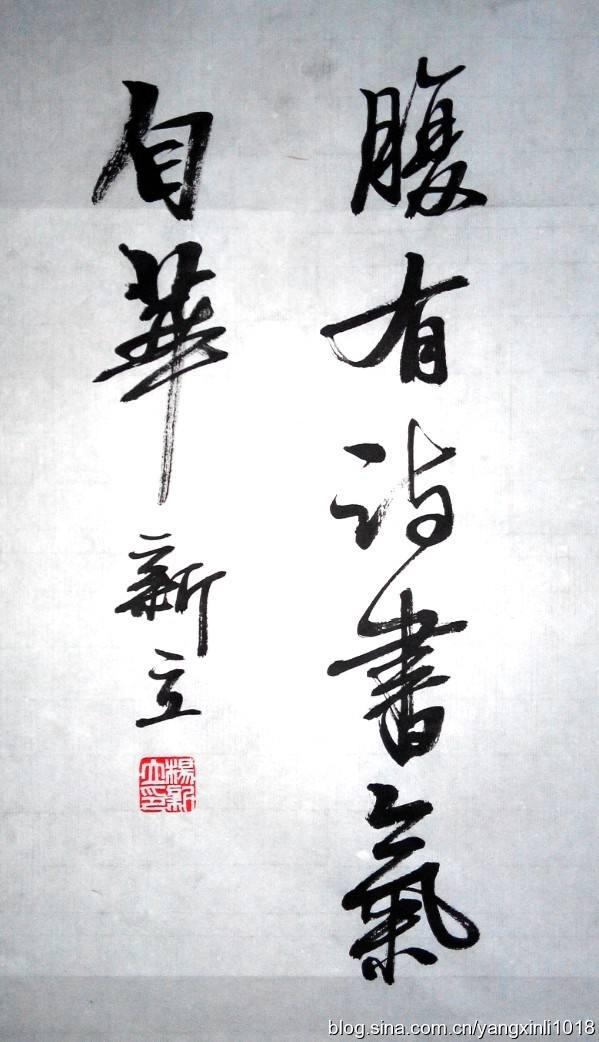 腹有詩書氣
自華 新立
楊新立印
blog.sina.com.cn/yangxinli1018